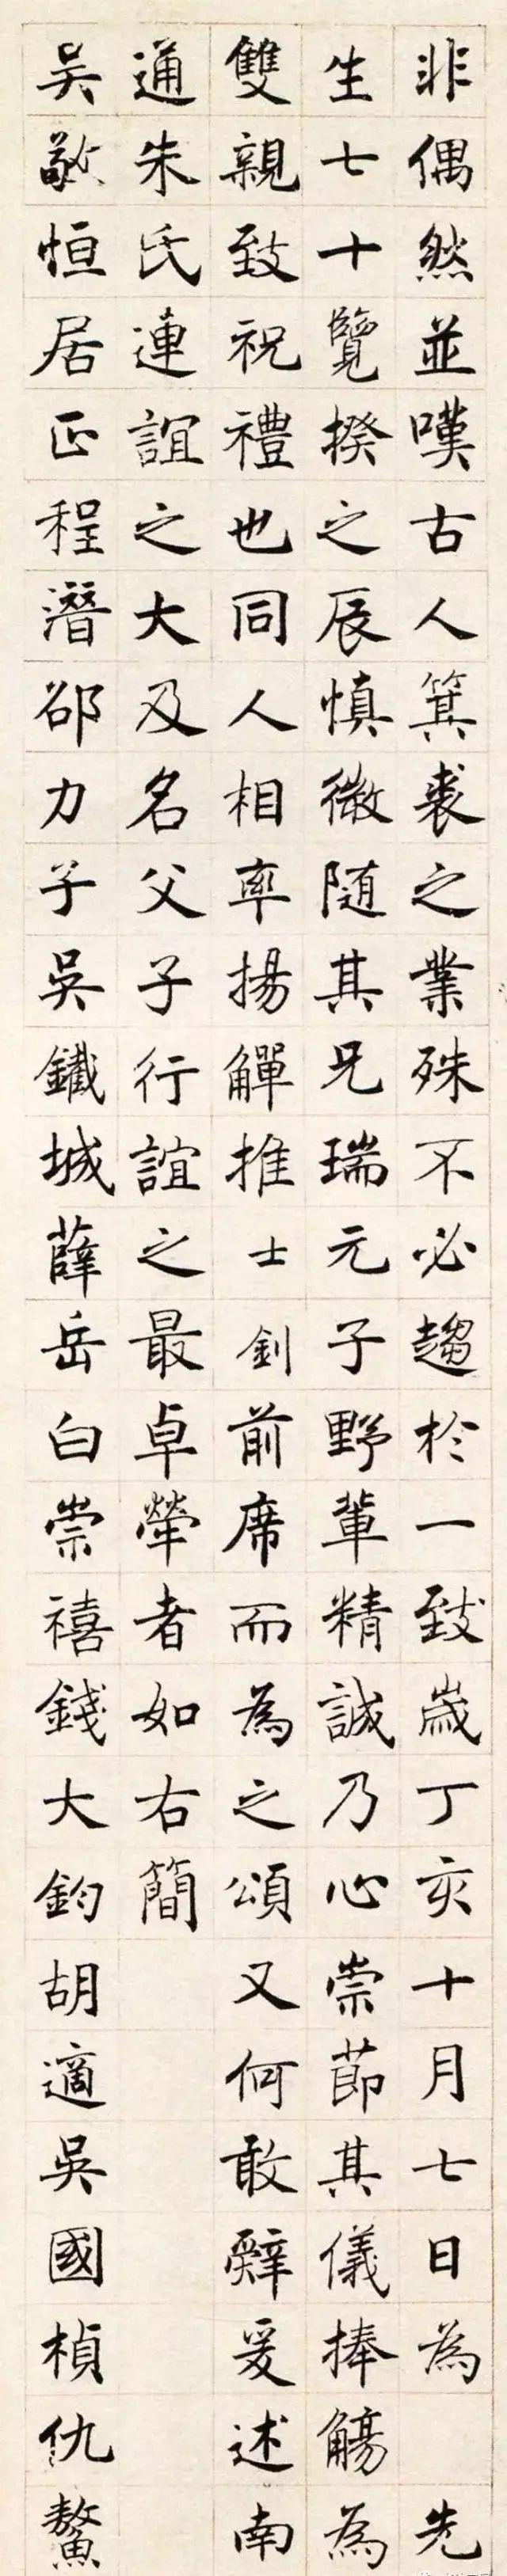 非偶然並嘆古人箕裘之業殊不必趨於一致歲丁亥十月七日為 先
生七十覽揆之辰慎微随其兄瑞元子野輩精誠乃心崇節其儀捧觴為
雙親致祝禮也同人相率揚觶推士釗前席而為之頌又何敢辭爰述南
通朱氏連誼之大及名父子行誼之最卓犖者如右簡
吴敬恒居正程潛邵力子吳鐵城薛岳白崇禧錢大鈞胡適吳國楨仇鰲